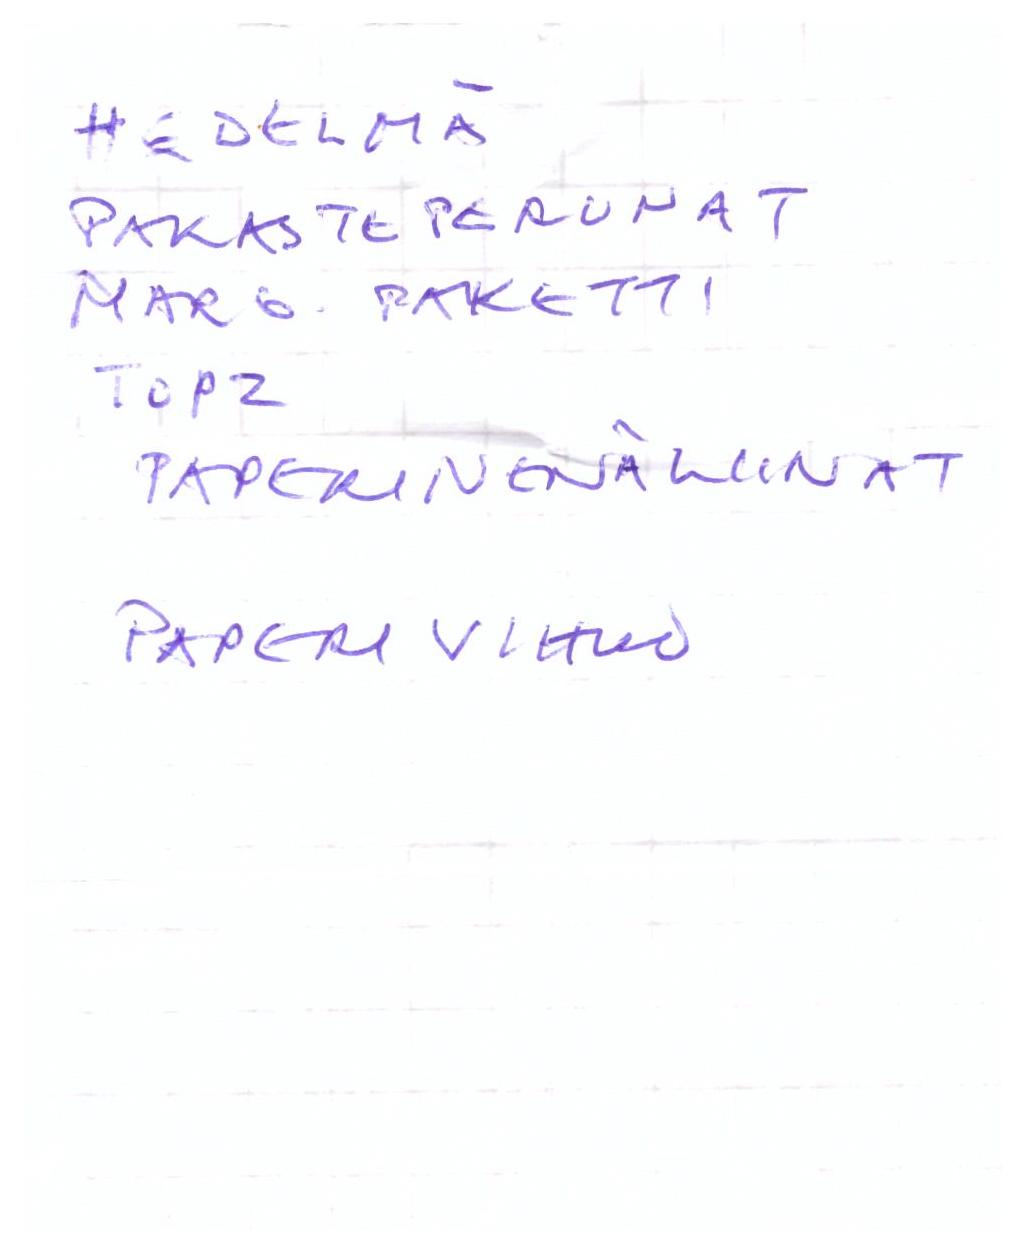 HEDELMÄ
PAKASTEPERUNAT
MARG. PAKETTI
TOPZ
PAPERINENÄLIINAT
PAPERI VIHKO